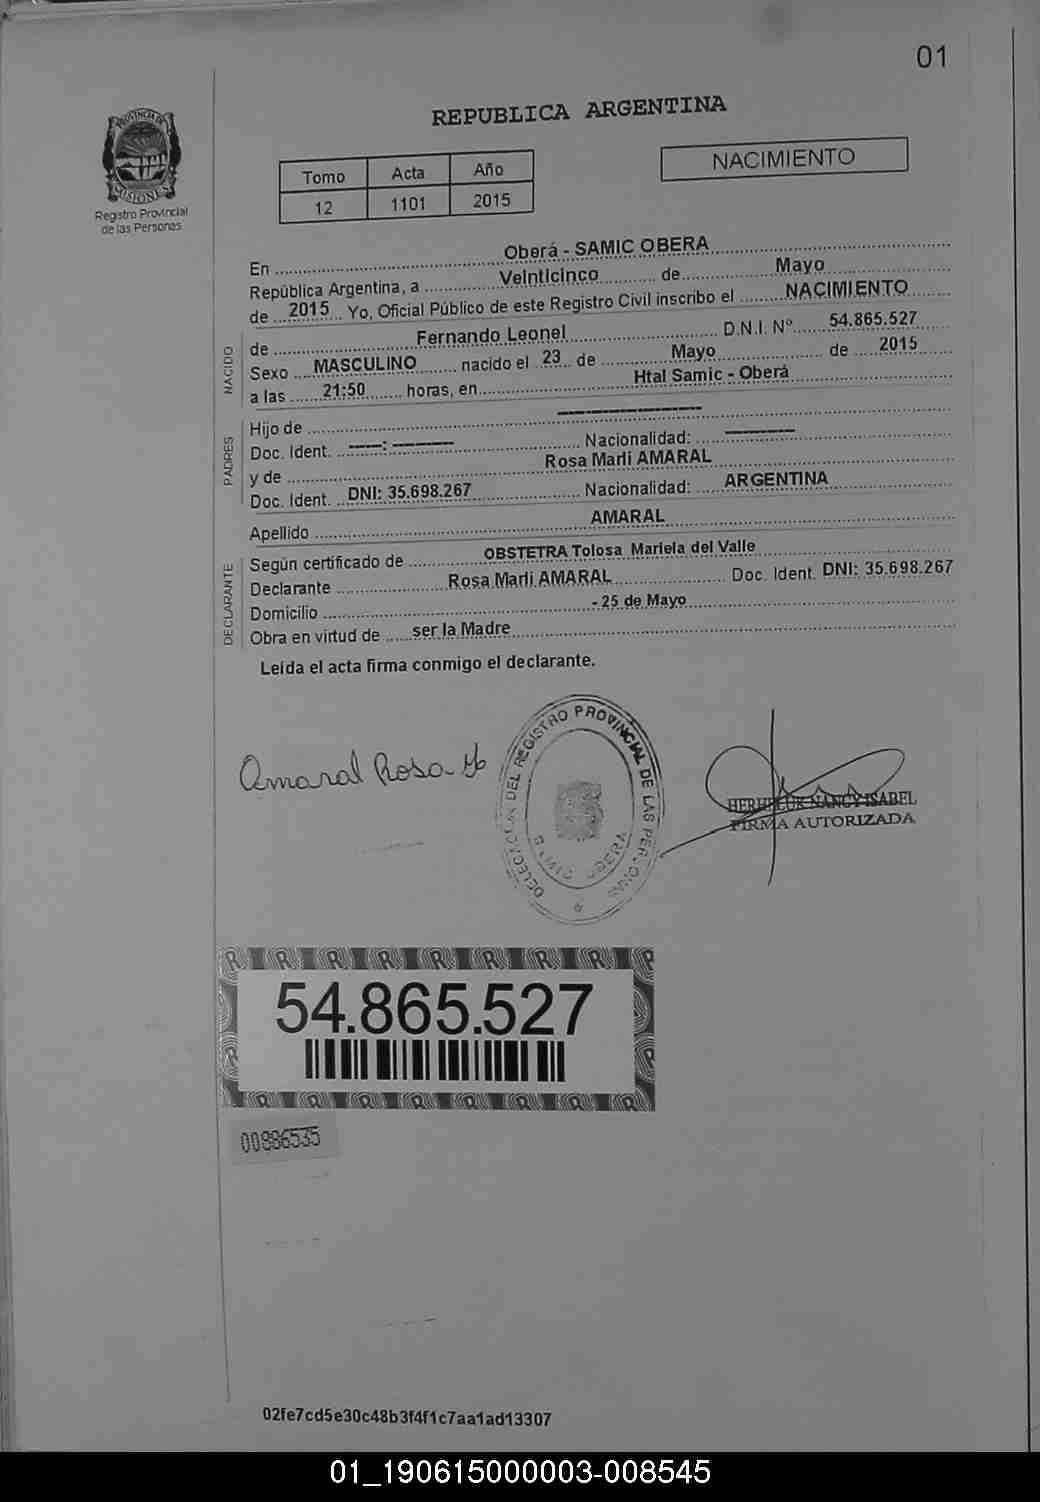 01
REPUBLICA ARGENTINA
PROVINCIA DE
MISIONES
Registro Provincial
de las Personas
Tomo Acta Año
12 1101 2015
NACIMIENTO
En Oberá - SAMIC OBERA
República Argentina, a Veinticinco de Mayo
de 2015 Yo, Oficial Público de este Registro Civil inscribo el NACIMIENTO
NACIDO
de Fernando Leonel D.N.I. Nº 54.865.527
Sexo MASCULINO nacido el 23 de Mayo de 2015
a las 21:50 horas, en Htal Samic - Oberá
PADRES
Hijo de --------------------
Doc. Ident. -----: --------- Nacionalidad: ----------
y de Rosa Marli AMARAL
Doc. Ident. DNI: 35.698.267 Nacionalidad: ARGENTINA
Apellido AMARAL
DECLARANTE
Según certificado de OBSTETRA Tolosa Mariela del Valle
Declarante Rosa Marli AMARAL Doc. Ident. DNI: 35.698.267
Domicilio - 25 de Mayo
Obra en virtud de ser la Madre
Leída el acta firma conmigo el declarante.
Amaral Rosa
DELEGACION DEL REGISTRO PROVINCIAL DE LAS PERSONAS
SAMIC OBERA
NANCY ISABEL
FIRMA AUTORIZADA
54.865.527
00886535
02fe7cd5e30c48b3f4f1c7aa1ad13307
01_190615000003-008545